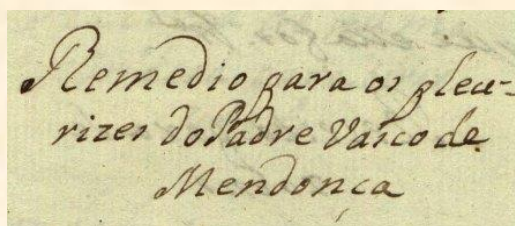 Remedio para os pleu-
rizes do Padre Vasco de
Mendonça